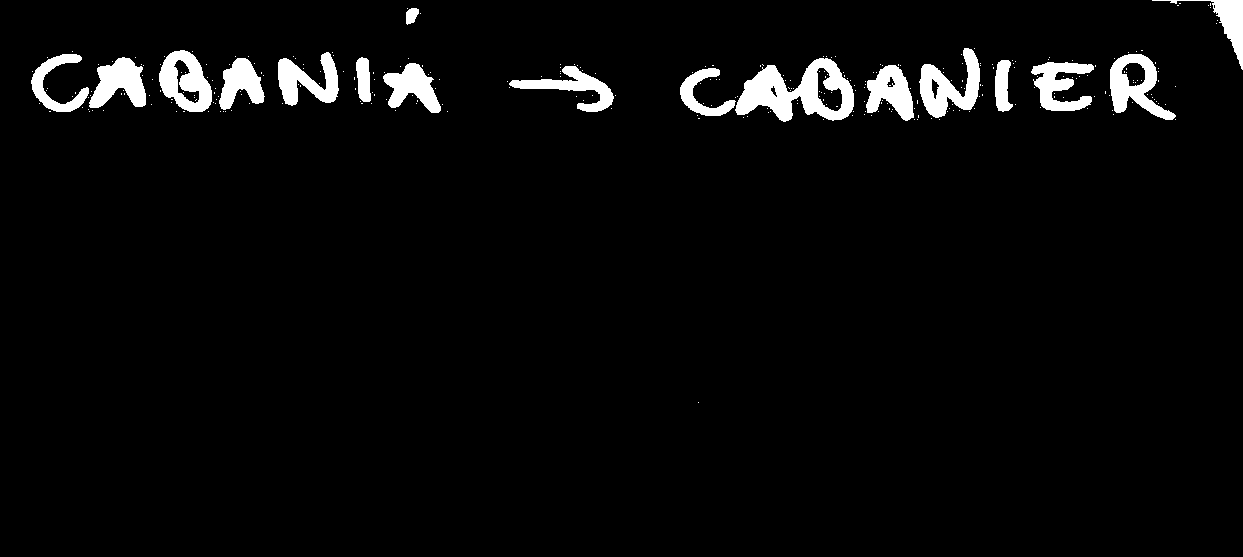 CABANIÁ → CABANIER